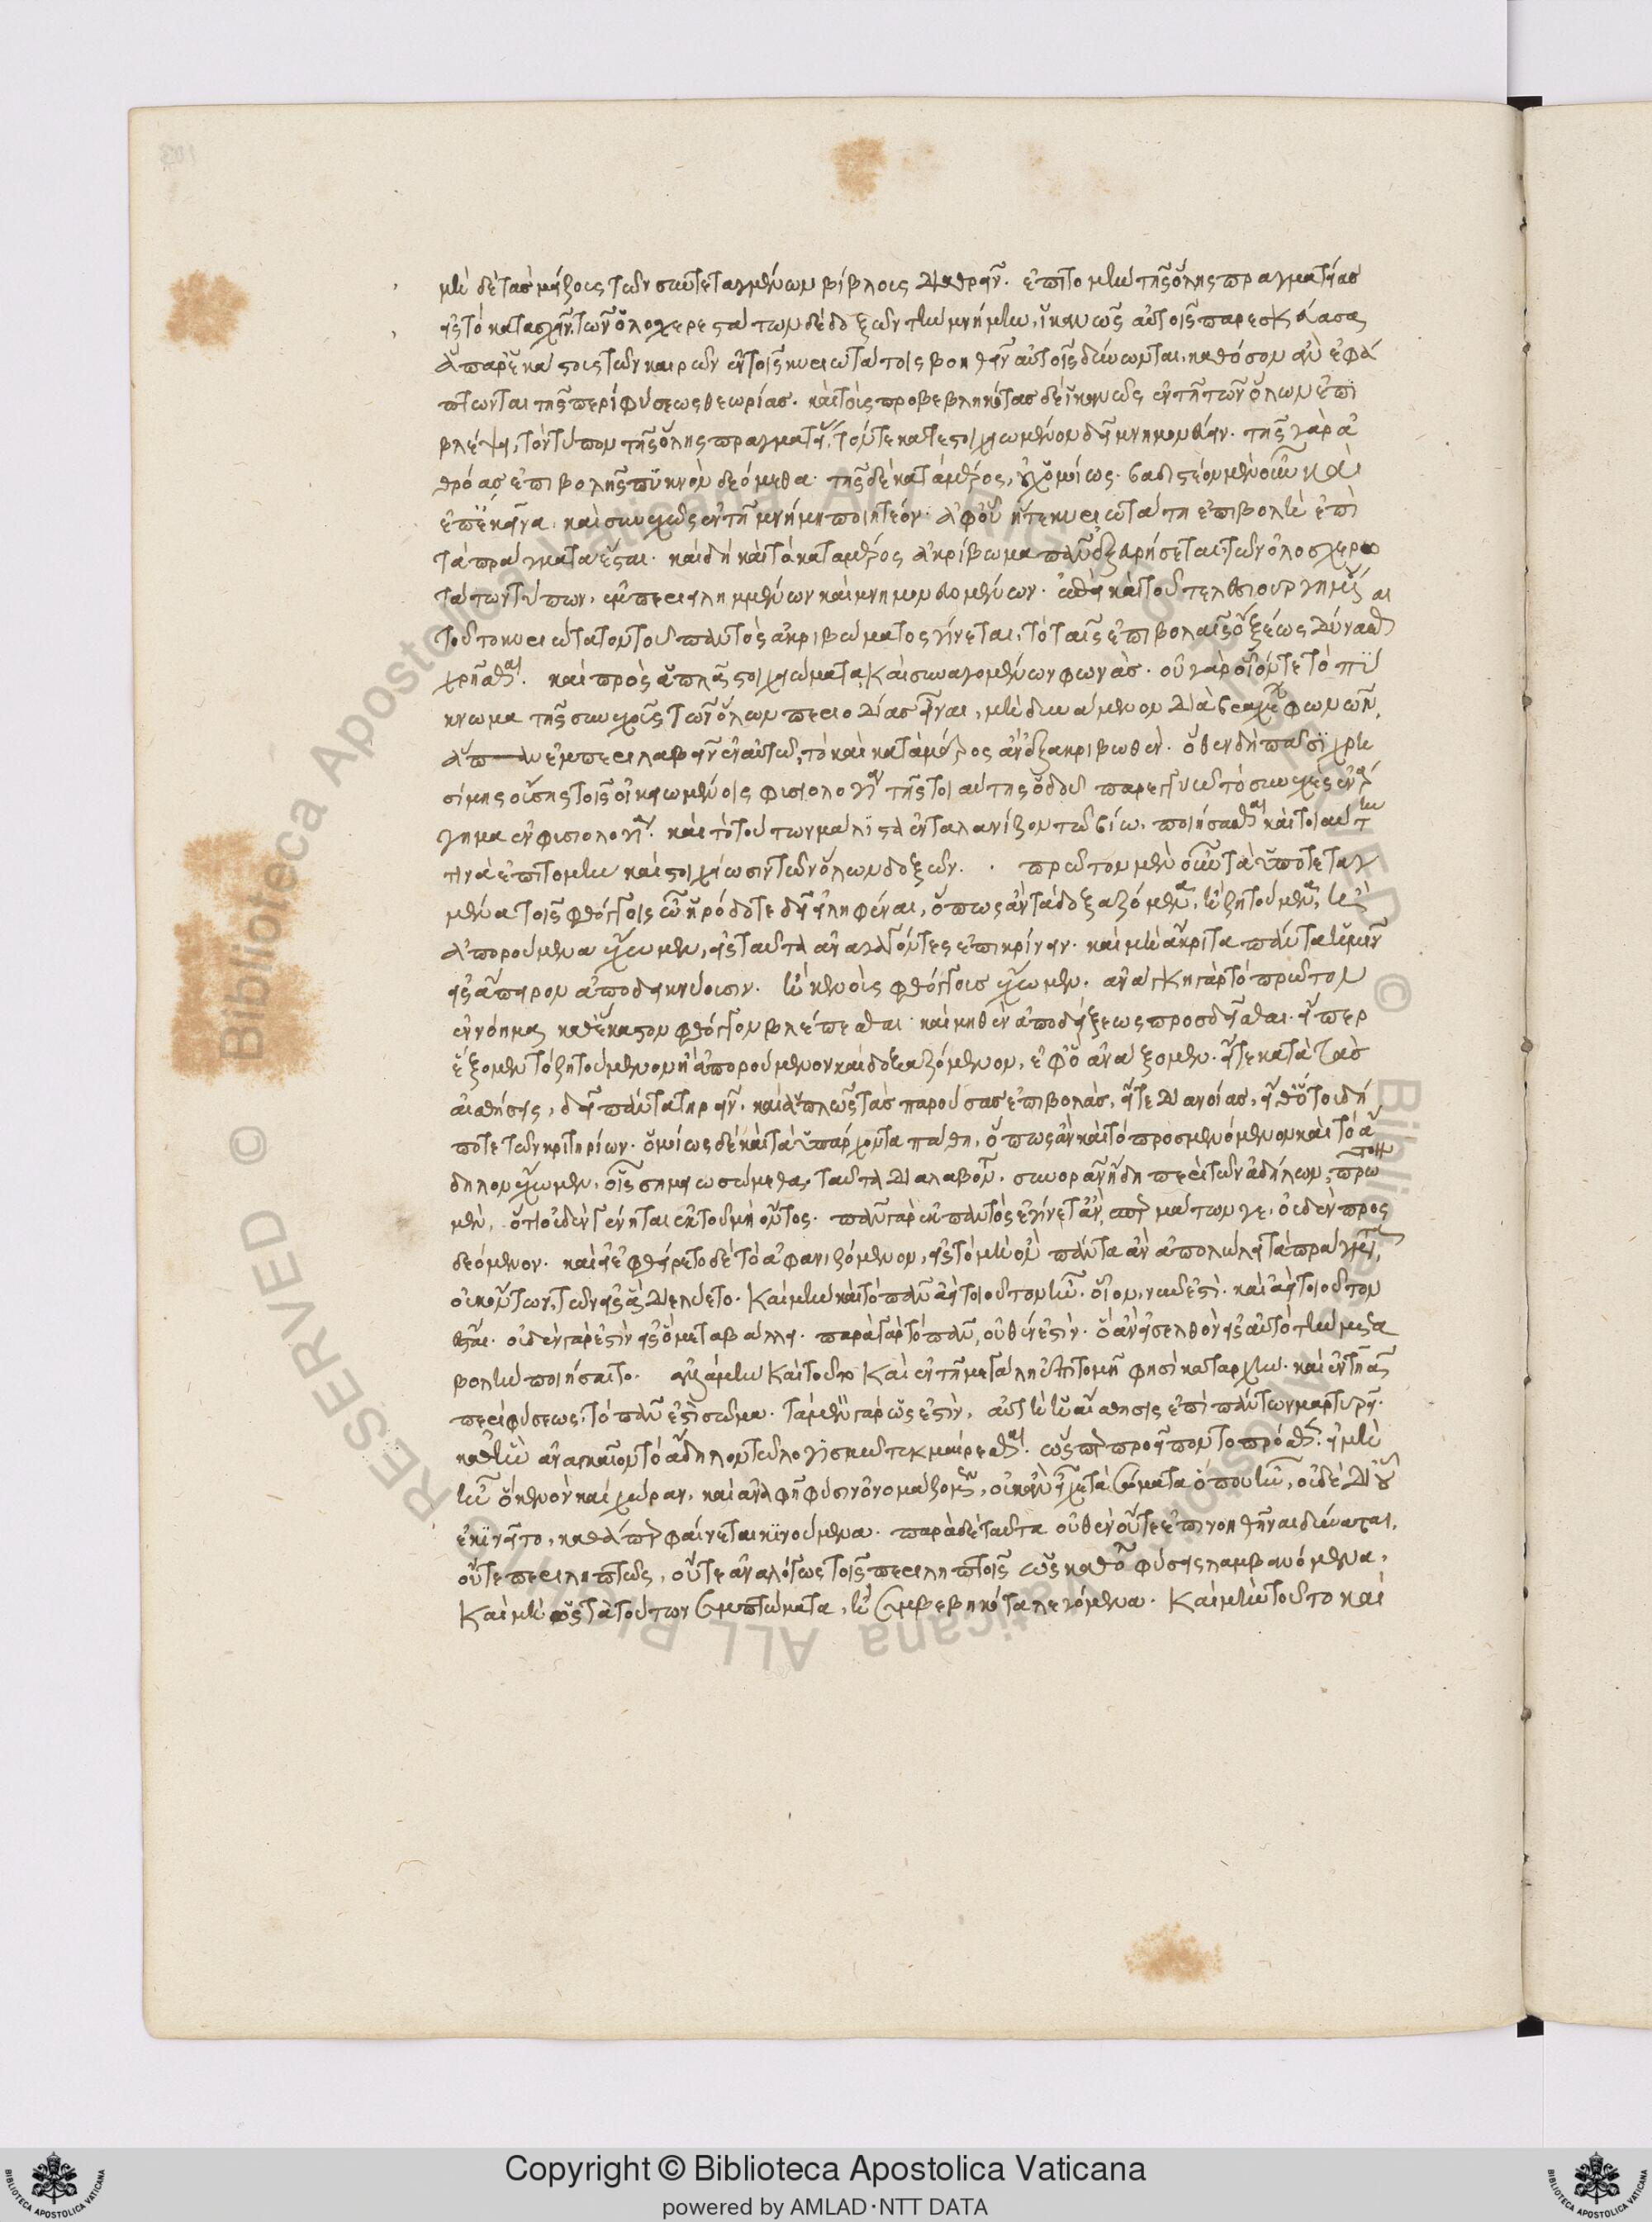 μὴ δὲ τὰς μείζους τῶν συντεταγμένων βίβλους διαθρεῖν. ἐπιτομὴν τῆς ὅλης πραγματείας
εἰς τὸ κατασχεῖν τῶν ὁλοσχερωτάτων δὲ δοξῶν τὴν μνήμην, ἱκανῶς αὐτοῖς παρεσκεύασα
παρ' ἑκάστους τῶν καιρῶν ἐν τοῖς κυριωτάτοις βοηθεῖν αὐτοῖς δύνωνται, καθόσον ἂν ἐφά
πτωνται τῆς περὶ φύσεως θεωρίας. καὶ τοὺς προβεβληκότας δὲ ἱκανῶς ἐν τῆ τῶν ὅλων ἐπι
βλέψει, τὸν τύπον τῆς ὅλης πραγματείας, τὸν τε κατεστοιχειωμένον δεῖ μνημονεύειν. τῆς γὰρ ἀ
θρόας ἐπιβολῆς πυκνὸν δεόμεθα. τῆς δὲ κατὰ μέρος, οὐχ ὁμοίως. βαδιστέον μὲν οὖν καὶ
ἐπ' ἐκεῖνα. καὶ συνεχῶς ἐν τῆ μνήμη ποιητέον. ἀφ' οὗ ἥτε κυριωτάτη ἐπιβολὴ ἐπὶ
τὰ πράγματα ἔσται. καὶ δὴ καὶ τὸ κατὰ μέρος ἀκρίβωμα πᾶν ἐξευρήσεται. τῶν ὁλοσχερω
τάτων τύπων, ἐμπεριειλημμένων καὶ μνημονευομένων. ἐπεὶ καὶ τοῦ τελεσιουργημένου
τοῦτο κυριώτατον τοῦ παντὸς ἀκριβώματος γίνεται, τὸ ταῖς ἐπιβολαῖς ὀξέως δύνασθαι
χρῆσθαι. καὶ πρὸς ἁπλᾶ στοιχειώματα, καὶ συναγομένων φωνάς. οὐ γὰρ οἷόν τε τὸ πύ
κνωμα τῆς συνεχοῦς τῶν ὅλων περιοδίας εἶναι, μὴ δυνάμενον διὰ βραχέων φωνῶν
ἅπαν ἐμπεριλαβεῖν ἐν αὑτῶ, τὸ καὶ κατὰ μέρος ἂν ἐξακριβωθέν. ὅθεν δὴ πᾶσι χρη
σίμης οὔσης τοῖς ὠκειωμένοις φυσιολογία τῆς τοιαύτης ὁδοῦ παρεγγυῶ τὸ συνεχὲς ἐνέρ
γημα ἐν φυσιολογία. καὶ τὸ τούτων μάλιστα ἐνγαλανίζον τῶ βίω, ποιήσασθαι καὶ τοιαύτην
τινὰ ἐπιτομὴν καὶ στοιχείωσιν τῶν ὅλων δοξῶν. πρῶτον μὲν οὖν τὰ ὑποτεταγ
μένα τοῖς φθόγγοις ὦ ἡρόδοτε δεῖ εἰληφέναι, ὅπως ἂν τὰ δοξαζόμενα, ἢ ζητούμενα, ἢ
ἀπορούμενα ἔχωμεν, εἰς ταῦτα ἀναγαγόντες ἐπικρίνειν. καὶ μὴ ἄκριτα πάντα ἡμῖν
εἰς ἄπειρον ἀποδεικνύουσιν. ἢ κενοὺς φθόγγους ἔχωμεν. ἀνάγκη γὰρ τὸ πρῶτον
ἐννόημα, καθ' ἕκαστον φθόγγον βλέπεσθαι. καὶ μηθὲν ἀποδείξεως προσδεῖσθαι. εἴπερ
ἕξομεν τὸ ζητούμενον ἢ ἀπορούμενον καὶ δοξαζόμενον, ἐφ' ὃ ἀνάξομεν. εἴτε κατὰ τὰς
αἰσθήσεις, δεῖ πάντα τηρεῖν. καὶ ἁπλῶς τὰς παρούσας ἐπιβολὰς, εἴτε διανοίας, εἴθ' ὅτου δή
ποτε τῶν κριτηρίων. ὁμοίως δὲ καὶ τὰ ὑπάρχοντα πάθη, ὅπως ἂν καὶ τὸ προσμενόμενον καὶ τὸ ἄ
δηλον ἔχωμεν, οἷς σημειωσώμεθα. ταῦτα διαλαβόντας συνορᾶν ἤδη περὶ τῶν ἀδήλων, πρῶτον
μὲν, ὅτι οὐδὲν γένηται ἐκ τοῦ μὴ ὄντος. πᾶν γὰρ ἐκ παντὸς ἐγίνετ' ἂν, σπερμάτων γε, οὐδὲν προς
δεόμενον. καὶ εἰ ἐφθείρετο δὲ τὸ ἀφανιζόμενον, εἰς τὸ μὴ ὂν πάντα ἂν ἀπολώλει τὰ πράγματα,
οὐκ ὄντων, τῶν εἰς ἃ διελύετο. Καὶ μὴν καὶ τὸ πᾶν ἀεὶ τοιοῦτον ἦν. οἷον, νῦν ἐστί. καὶ ἀεὶ τοιοῦτον
ἔσται. οὐδὲν γάρ ἐστιν εἰς ὃ μεταβάλλει. παρὰ γὰρ τὸ πᾶν, οὐθέν ἐστιν. ὃ ἂν εἰσελθὸν εἰς αὐτὸ τὴν μετα
βολὴν ποιήσαιτο. ἀλλὰ μὴν καὶ τοῦτο Καὶ ἐν τῆ μεγάλη ἐπιτομῆ φησὶ κατ' ἀρχὴν. καὶ ἐν τῆ αʹ
περὶ φύσεως, τὸ πᾶν ἐστὶ σῶμα. τὰ μὲν γὰρ ὡς ἐστὶν, αὐτὴ ἡ αἴσθησις ἐπὶ πάντων μαρτυρεῖ.
καθ' ἣν ἀναγκαῖον τὸ ἄδηλον τῶ λογισμῶ τεκμαίρεσθαι. ὥσπερ προεῖπον τὸ πρόσθεν. εἰ μὴ
ἦν ὃ κενὸν καὶ χώραν, καὶ ἀναφῆ φύσιν ὀνομάζομεν, οὐκ ἂν εἶχε τὰ σώματα ὅπου ἦν, οὐδὲ δι' οὗ
ἐκινεῖτο, καθάπερ φαίνεται κινούμενα. παρὰ δὲ ταῦτα οὐθὲν οὔτε ἐπινοηθῆναι δύναται,
οὔτε περιληπτῶς, οὔτε ἀναλόγως τοῖς περιληπτοῖς ὡς καθ' ὅλας φύσεις λαμβανόμενα,
Καὶ μὴ ὡς τὰ τούτων συμπτώματα, ἢ συμβεβηκότα λεγόμενα. Καὶ μὴν τοῦτο καὶ
Copyright © Biblioteca Apostolica Vaticana
powered by AMLAD·NTT DATA